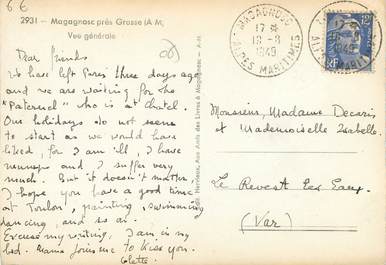 6 €
2931 - Magagnosc près Grasse (A M.
Vue générale
Dear friends
We have left Paris three days ago
and we are waiting for the
"Paternel" who is at Chatel.
Our holidays do not seem
to start as we would have
liked, for I am ill, I have
and I suffer very
much. But it doesn't matter,
I hope you have a good time
at Toulon, painting, swimming
dancing, and so on.
Excuse my writing, I am in my
bed. Mama joins me to kiss you.
Colette.
MAGAGNOSC
17
18-8
1949
ALPES MARITIMES
Monsieur, Madame Decaris
et Mademoiselle Isabelle.
Le Revest les Eaux.
(Var)